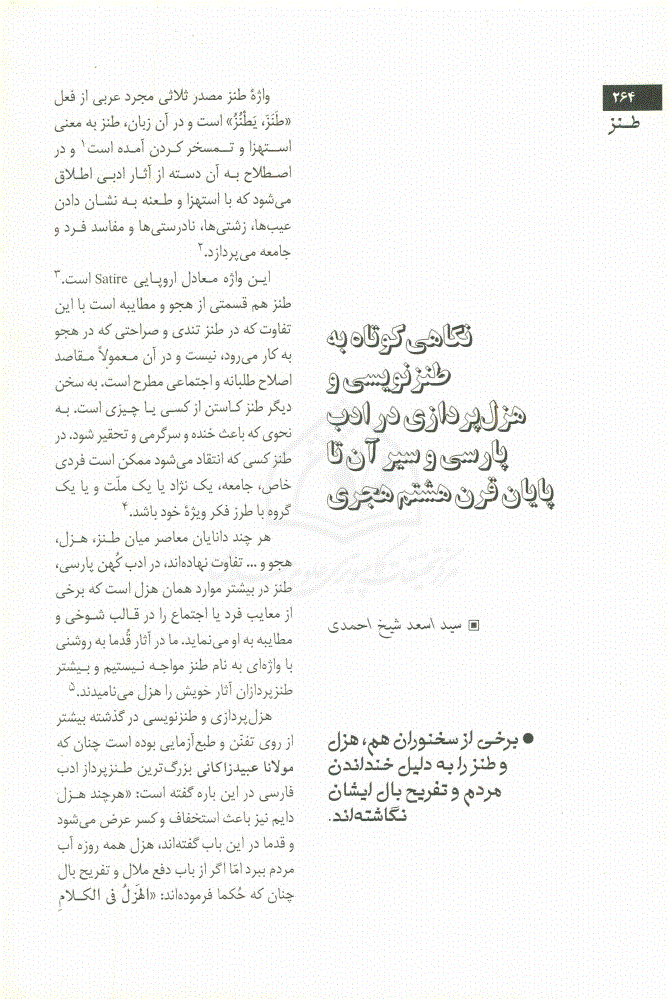 ۲۶۴
طنز
نگاهی کوتاه به
طنزنویسی و
هزل‌پردازی در ادب
پارسی و سیر آن تا
پایان قرن هشتم هجری
سید اسعد شیخ احمدی
● برخی از سخنوران هم، هزل
و طنز را به دلیل خنداندن
مردم و تفریح بال ایشان
نگاشته‌اند.
واژهٔ طنز مصدر ثلاثی مجرد عربی از فعل
«طَنَزَ، یَطْنُزُ» است و در آن زبان، طنز به معنی
استهزا و تمسخر کردن آمده است۱ و در
اصطلاح به آن دسته از آثار ادبی اطلاق
می‌شود که با استهزا و طعنه به نشان دادن
عیب‌ها، زشتی‌ها، نادرستی‌ها و مفاسد فرد و
جامعه می‌پردازد.۲
این واژه معادل اروپایی Satire است.۳
طنز هم قسمتی از هجو و مطایبه است با این
تفاوت که در طنز تندی و صراحتی که در هجو
به کار می‌رود، نیست و در آن معمولاً مقاصد
اصلاح طلبانه و اجتماعی مطرح است. به سخن
دیگر طنز کاستن از کسی یا چیزی است. به
نحوی که باعث خنده و سرگرمی و تحقیر شود. در
طنز کسی که انتقاد می‌شود ممکن است فردی
خاص، جامعه، یک نژاد یا یک ملّت و یا یک
گروه با طرز فکر ویژهٔ خود باشد.۴
هر چند دانایان معاصر میان طنز، هزل،
هجو و ... تفاوت نهاده‌اند، در ادب کُهن پارسی،
طنز در بیشتر موارد همان هزل است که برخی
از معایب فرد یا اجتماع را در قالب شوخی و
مطایبه به او می‌نماید. ما در آثار قُدما به روشنی
با واژه‌ای به نام طنز مواجه نیستیم و بیشتر
طنزپردازان آثار خویش را هزل می‌نامیدند.۵
هزل‌پردازی و طنزنویسی در گذشته بیشتر
از روی تفنّن و طبع‌آزمایی بوده است چنان که
مولانا عبیدزاکانی بزرگ‌ترین طنزپرداز ادب
فارسی در این باره گفته است: «هرچند هزل
دایم نیز باعث استخفاف و کسر عرض می‌شود
و قدما در این باب گفته‌اند، هزل همه روزه آب
مردم ببرد امّا اگر از باب دفع ملال و تفریح بال
چنان که حُکما فرموده‌اند: «الهَزلُ فی الکلامِ